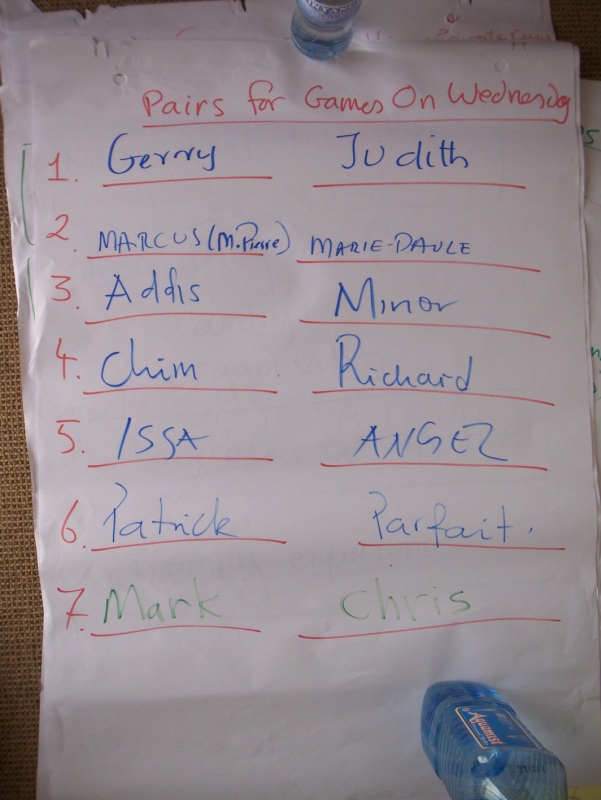 Pairs for Games On Wednesday
1. Gerry Judith
2. MARCUS (M.Pierre) MARIE-PAULE
3. Addis Minor
4. Chim Richard
5. ISSA ANGEL
6. Patrick Parfait.
7. Mark Chris
Aquamist